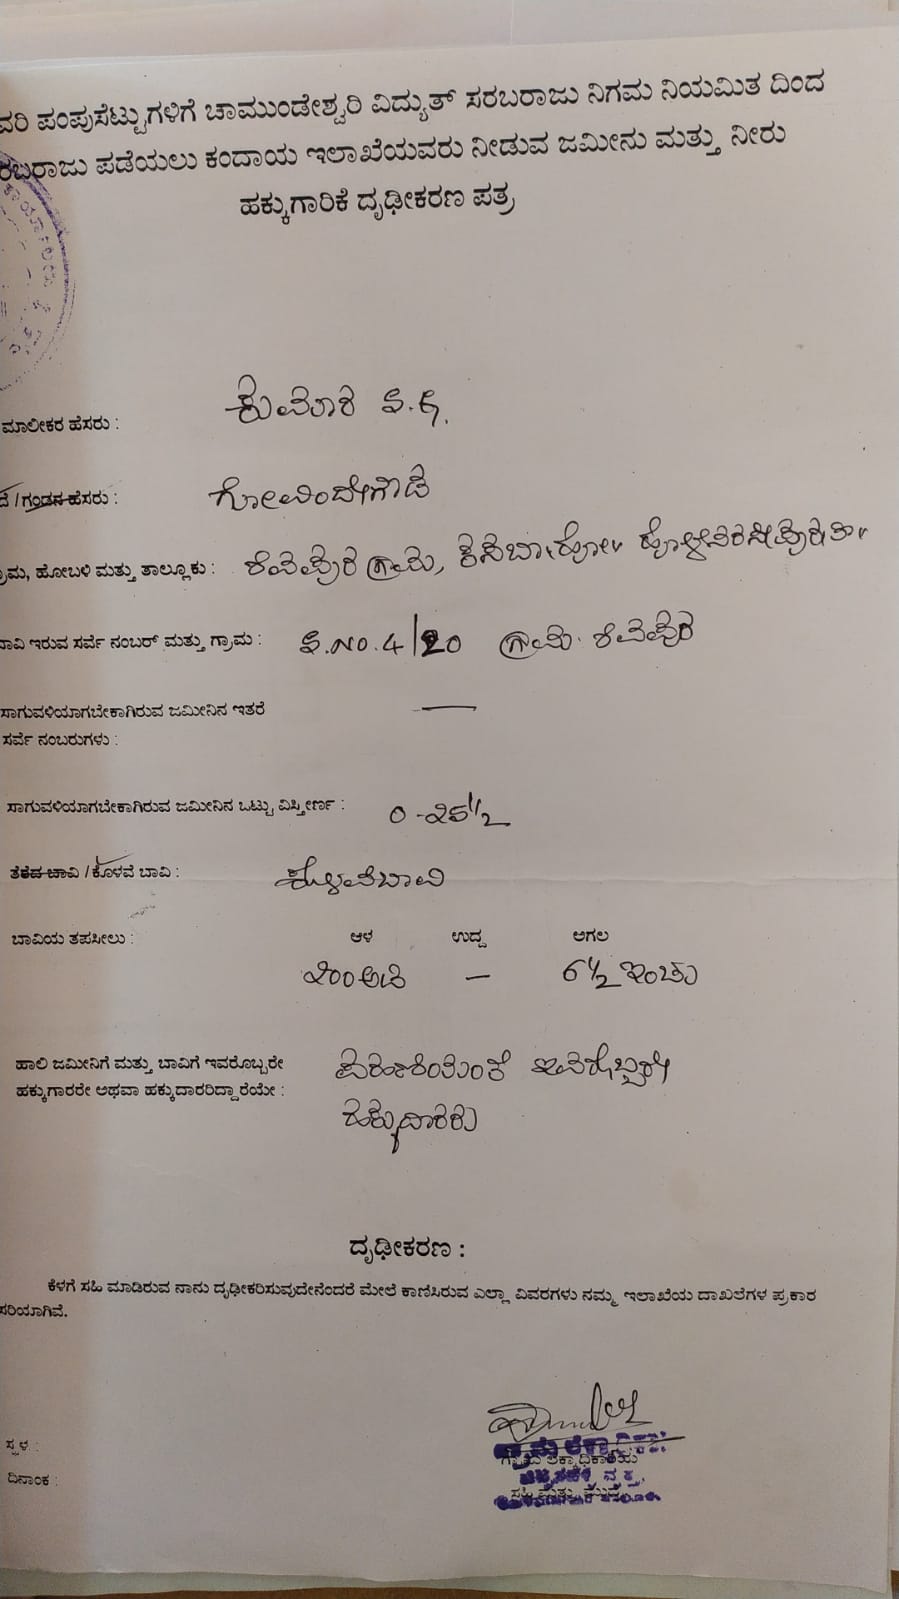 ವರಿ ಪಂಪುಸೆಟ್ಟುಗಳಿಗೆ ಚಾಮುಂಡೇಶ್ವರಿ ವಿದ್ಯುತ್ ಸರಬರಾಜು ನಿಗಮ ನಿಯಮಿತ ದಿಂದ
ರಬರಾಜು ಪಡೆಯಲು ಕಂದಾಯ ಇಲಾಖೆಯವರು ನೀಡುವ ಜಮೀನು ಮತ್ತು ನೀರು
ಹಕ್ಕುಗಾರಿಕೆ ದೃಢೀಕರಣ ಪತ್ರ
ಮಾಲೀಕರ ಹೆಸರು : ಕುಮಾರ
ದೆ / ಗಂಡನ ಹೆಸರು : ಗೋವಿಂದೇಗೌಡ
ರಾಮ, ಹೋಬಳಿ ಮತ್ತು ತಾಲ್ಲೂಕು : ಗ್ರಾಮ, ಕಸಬಾ
ಬಾವಿ ಇರುವ ಸರ್ವೆ ನಂಬರ್ ಮತ್ತು ಗ್ರಾಮ : ಸ.ನಂ. 4/20 ಗ್ರಾಮ
ಸಾಗುವಳಿಯಾಗಬೇಕಾಗಿರುವ ಜಮೀನಿನ ಇತರೆ —
ಸರ್ವೆ ನಂಬರುಗಳು :
ಸಾಗುವಳಿಯಾಗಬೇಕಾಗಿರುವ ಜಮೀನಿನ ಒಟ್ಟು ವಿಸ್ತೀರ್ಣ : 0-25 1/2
ತೆರೆದ ಬಾವಿ / ಕೊಳವೆ ಬಾವಿ : ಕೊಳವೆಬಾವಿ
ಬಾವಿಯ ತಪಸೀಲು : ಆಳ ಉದ್ದ ಅಗಲ
200 ಅಡಿ — 6 1/2 ಇಂಚು
ಹಾಲಿ ಜಮೀನಿಗೆ ಮತ್ತು ಬಾವಿಗೆ ಇವರೊಬ್ಬರೇ ಇವರೊಬ್ಬರೇ
ಹಕ್ಕುಗಾರರೇ ಅಥವಾ ಹಕ್ಕುದಾರರಿದ್ದಾರೆಯೇ : ಹಕ್ಕುದಾರರು
ದೃಢೀಕರಣ :
ಕೆಳಗೆ ಸಹಿ ಮಾಡಿರುವ ನಾನು ದೃಢೀಕರಿಸುವುದೇನೆಂದರೆ ಮೇಲೆ ಕಾಣಿಸಿರುವ ಎಲ್ಲಾ ವಿವರಗಳು ನಮ್ಮ ಇಲಾಖೆಯ ದಾಖಲೆಗಳ ಪ್ರಕಾರ
ಸರಿಯಾಗಿವೆ.
ಸ್ಥಳ :
ಗ್ರಾಮ ಲೆಕ್ಕಾಧಿಕಾರಿಯ
ದಿನಾಂಕ :
ಸಹಿ ಮತ್ತು ಮುದ್ರೆ